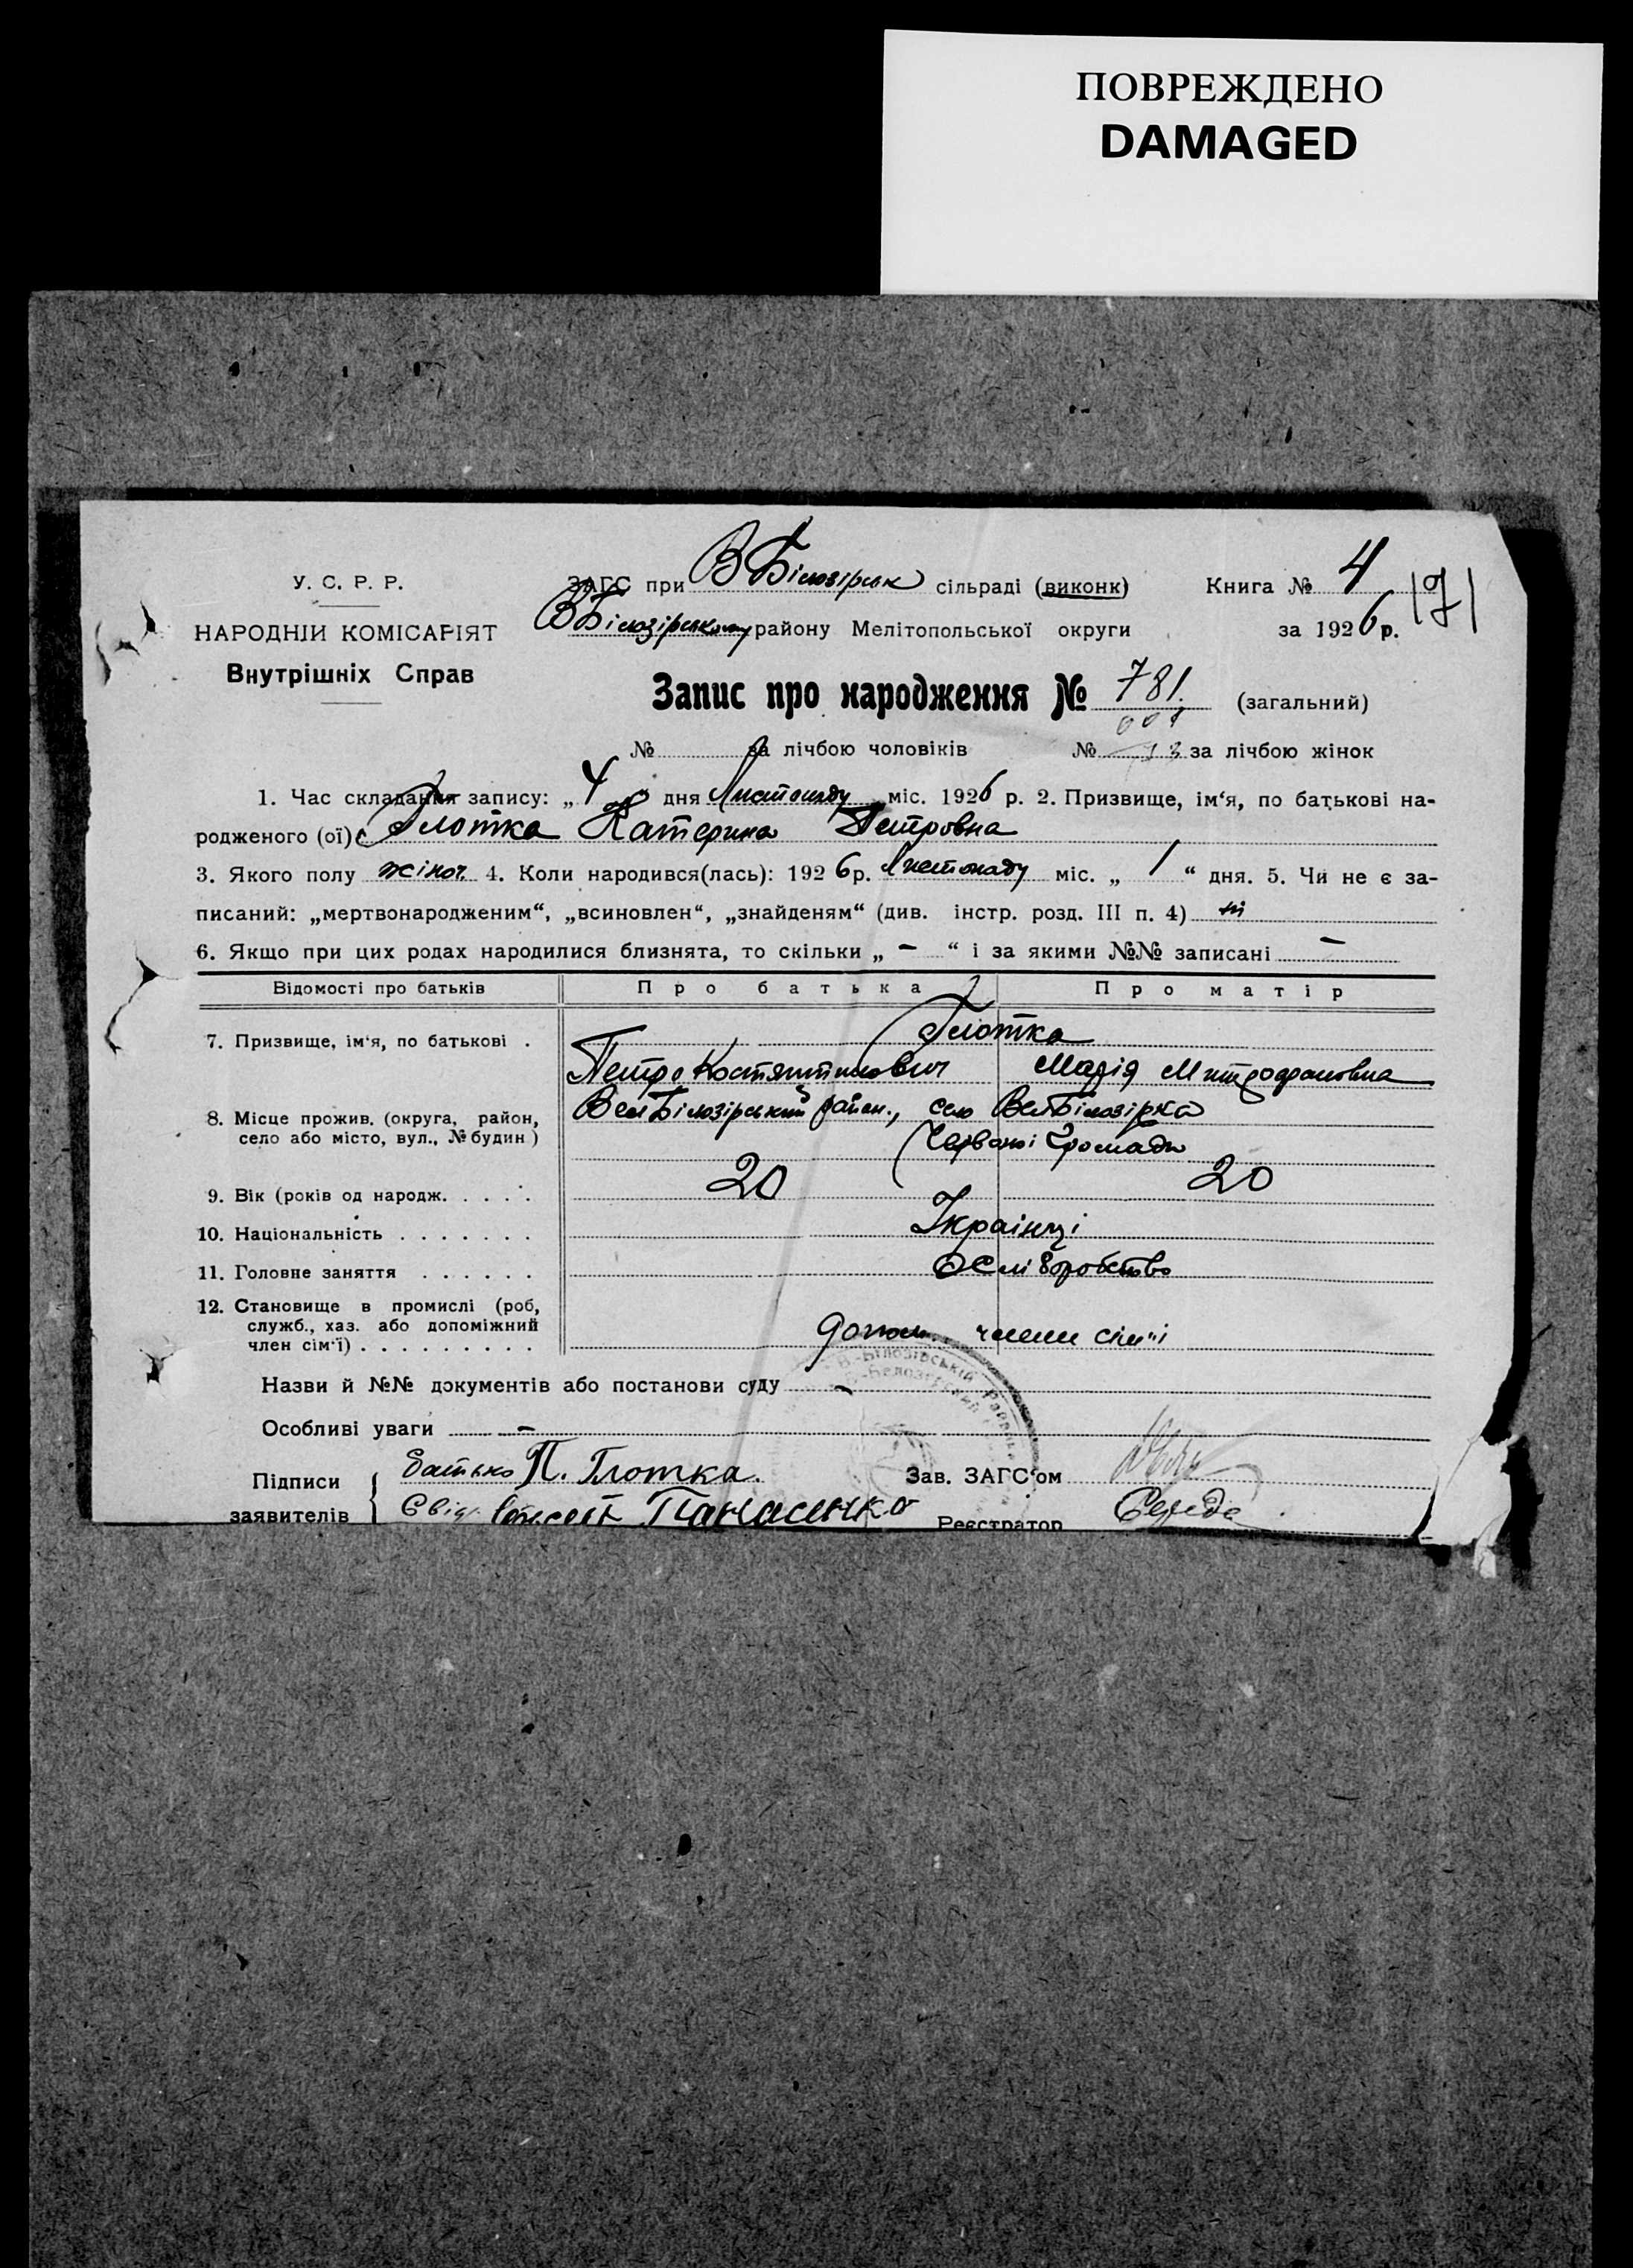 ПОВРЕЖДЕНО
DAMAGED
У. С. Р. Р.
НАРОДНІЙ КОМІСАРІЯТ
Внутрішніх Справ
ЗАГС при В Білозірськ сільраді (виконк) Книга № 4
ВБілозірському району Мелітопольської округи за 1926 р. 171
Запис про народження № 781. (загальний)
№ за лічбою чоловіків № за лічбою жінок
1. Час складання запису: „4“ дня Листопаду міс. 1926 р. 2. Призвище, ім‘я, по батькові на-
родженого (ої) Глотка Катерина Петровна
3. Якого полу жіноч. 4. Коли народився(лась): 1926 р. Листопаду міс. „1“ дня. 5. Чи не є за-
писаний: „мертвонародженим“, „всиновлен“, „знайденям“ (див. інстр. розд. III п. 4) ні
6. Якщо при цих родах народилися близнята, то скільки „ – “ і за якими №№ записані –
Відомості про батьків Про батька Про матір
7. Призвище, ім‘я, по батькові . Глотка
Петро Костянтинович Марія Митрофановна
8. Місце прожив. (округа, район, село або місто, вул., № будин ) Вел Білозірський район., село ВелБілозірка
Червоної Громади
9. Вік (років од народж. . . . . 20 20
10. Національність . . . . . . . Українці
11. Головне заняття . . . . . . Хліборобство
12. Становище в промислі (роб, служб., хаз. або допоміжний член сім‘ї) . . . . . . . . . допом. члени сім'ї
Назви й №№ документів або постанови суду –
Особливі уваги –
Підписи батько П. Глотка. Зав. ЗАГС‘ом
заявителів Свід. Панасенко Реєстратор Середа
В.-Білозірський Район